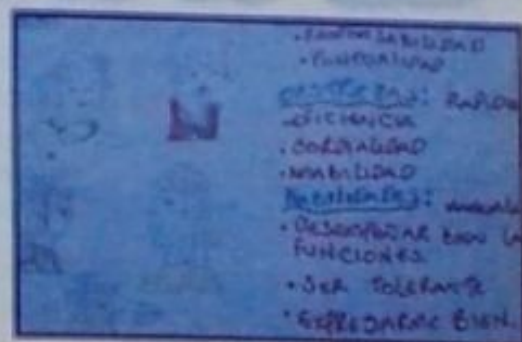 • RESPONSABILIDAD
• PUNTUALIDAD
DESTREZAS: RAPIDE
• EFICIENCIA
• CORDIALIDAD
• AMABILIDAD
HABILIDADES:
• DESEMPEÑAR BIEN LA
FUNCIONES
• SER TOLERANTE
• EXPRESARME BIEN.